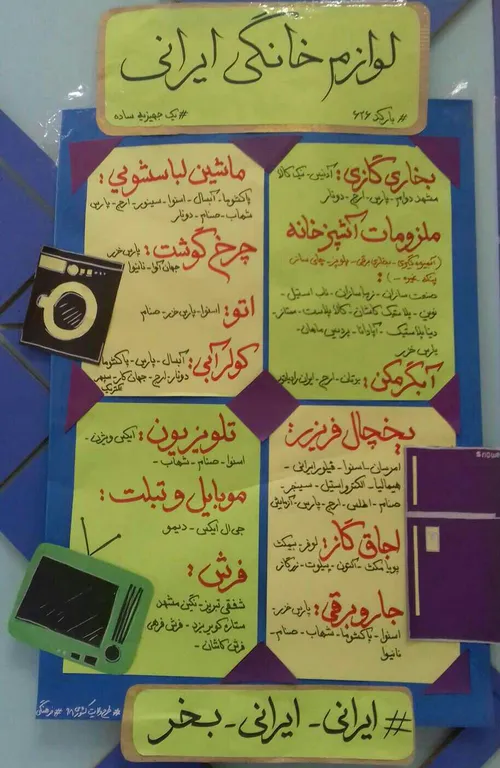 لوازم خانگی ایرانی
# بارکد ۶۲۶
# یک جهیزیه ساده
بخاری گازی: آدنیس - نیک کالا
مشهد دوام - پارس - ارج - دونار
ملزومات آشپزخانه
صنعت سازان - زیباسازان - ناب استیل -
نوین - پلاستیک کاشان - کالا پلاست -
دیبا پلاستیک - آپادانا - پردیس ماهان -
پارس خزر
آبگرمکن: بوتان - ارج - ایران رادیاتور
ماشین لباسشویی:
پاکشوما - آبسال - اسنوا - سینور - ارج - پارس
شهاب - صنام - دونار
چرخ گوشت: پارس خزر
جهان آوا - نانیوا
اتو: اسنوا - پارس خزر - صنام
کولر آبی: آبسال - پارس - پاکشوما
دونار - ارج - جهان کار - سپهر
الکتریک
یخچال فریزر:
امرسان - اسنوا - فیلور ایرانی -
هیمالیا - الکترواستیل - سینجر -
صنام - اطلس - ارج - پارس -
اجاق گاز: لوفر - بیمکث
پویا مکث - اکتون - پیلوت - زرگاز
جاروبرقی: پارس خزر -
اسنوا - پاکشوما - شهاب - صنام -
نانیوا
تلویزیون: ایکس ویژن -
اسنوا - صنام - شهاب -
موبایل و تبلت:
جی ال ایکس - دیمو
فرش:
شفقی تبریز - نگین مشهد
ستاره کویر یزد - فرش فرهی
فرش کاشان -
snowa
# ایرانی - ایرانی - بخر